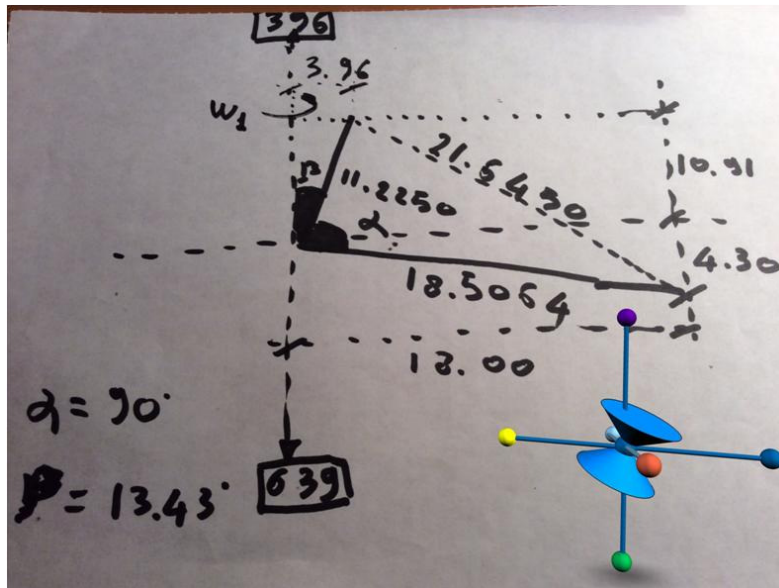 396
3.96
W₁
10.91
21.6450
β
11.2250
α
4.30
18.5064
18.00
α = 90°
β = 13.43°
639